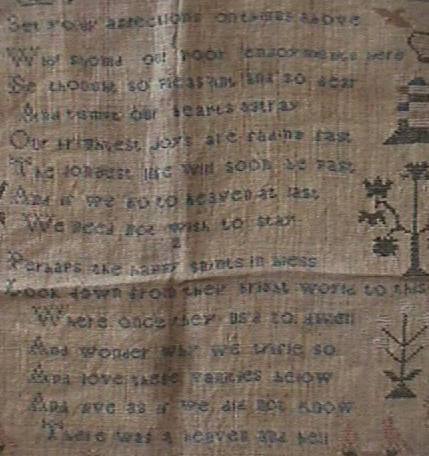 Set your affections on things above
Why should our poor enjoyments here
Be thought so pleasant and so dear
And tempt our hearts astray
Our brightest joys are fading fast
The longest life will soon be past
And if we go to heaven at last
We need not wish to stay
2
Perhaps the happy saints in bliss
Look down from their bright world to this
Where once they us'd to dwell
And wonder why we trifle so
And love these vanities below
And live as if we did not know
There was a heaven and hell